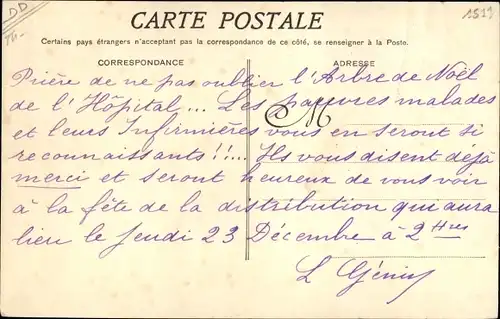 DD
CARTE POSTALE
1519
Certains pays étrangers n'acceptant pas la correspondance de ce côté, se renseigner à la Poste.
CORRESPONDANCE
ADRESSE
Prière de ne pas oublier l'Arbre de Noël
de l'Hôpital... Les pauvres malades
M
et leurs Infirmières vous en seront si
reconnaissants!!... Ils vous disent déjà
merci et seront heureux de vous voir
à la fête de la distribution qui aura
lieu le Jeudi 23 Décembre à 2 Hres
L Génin